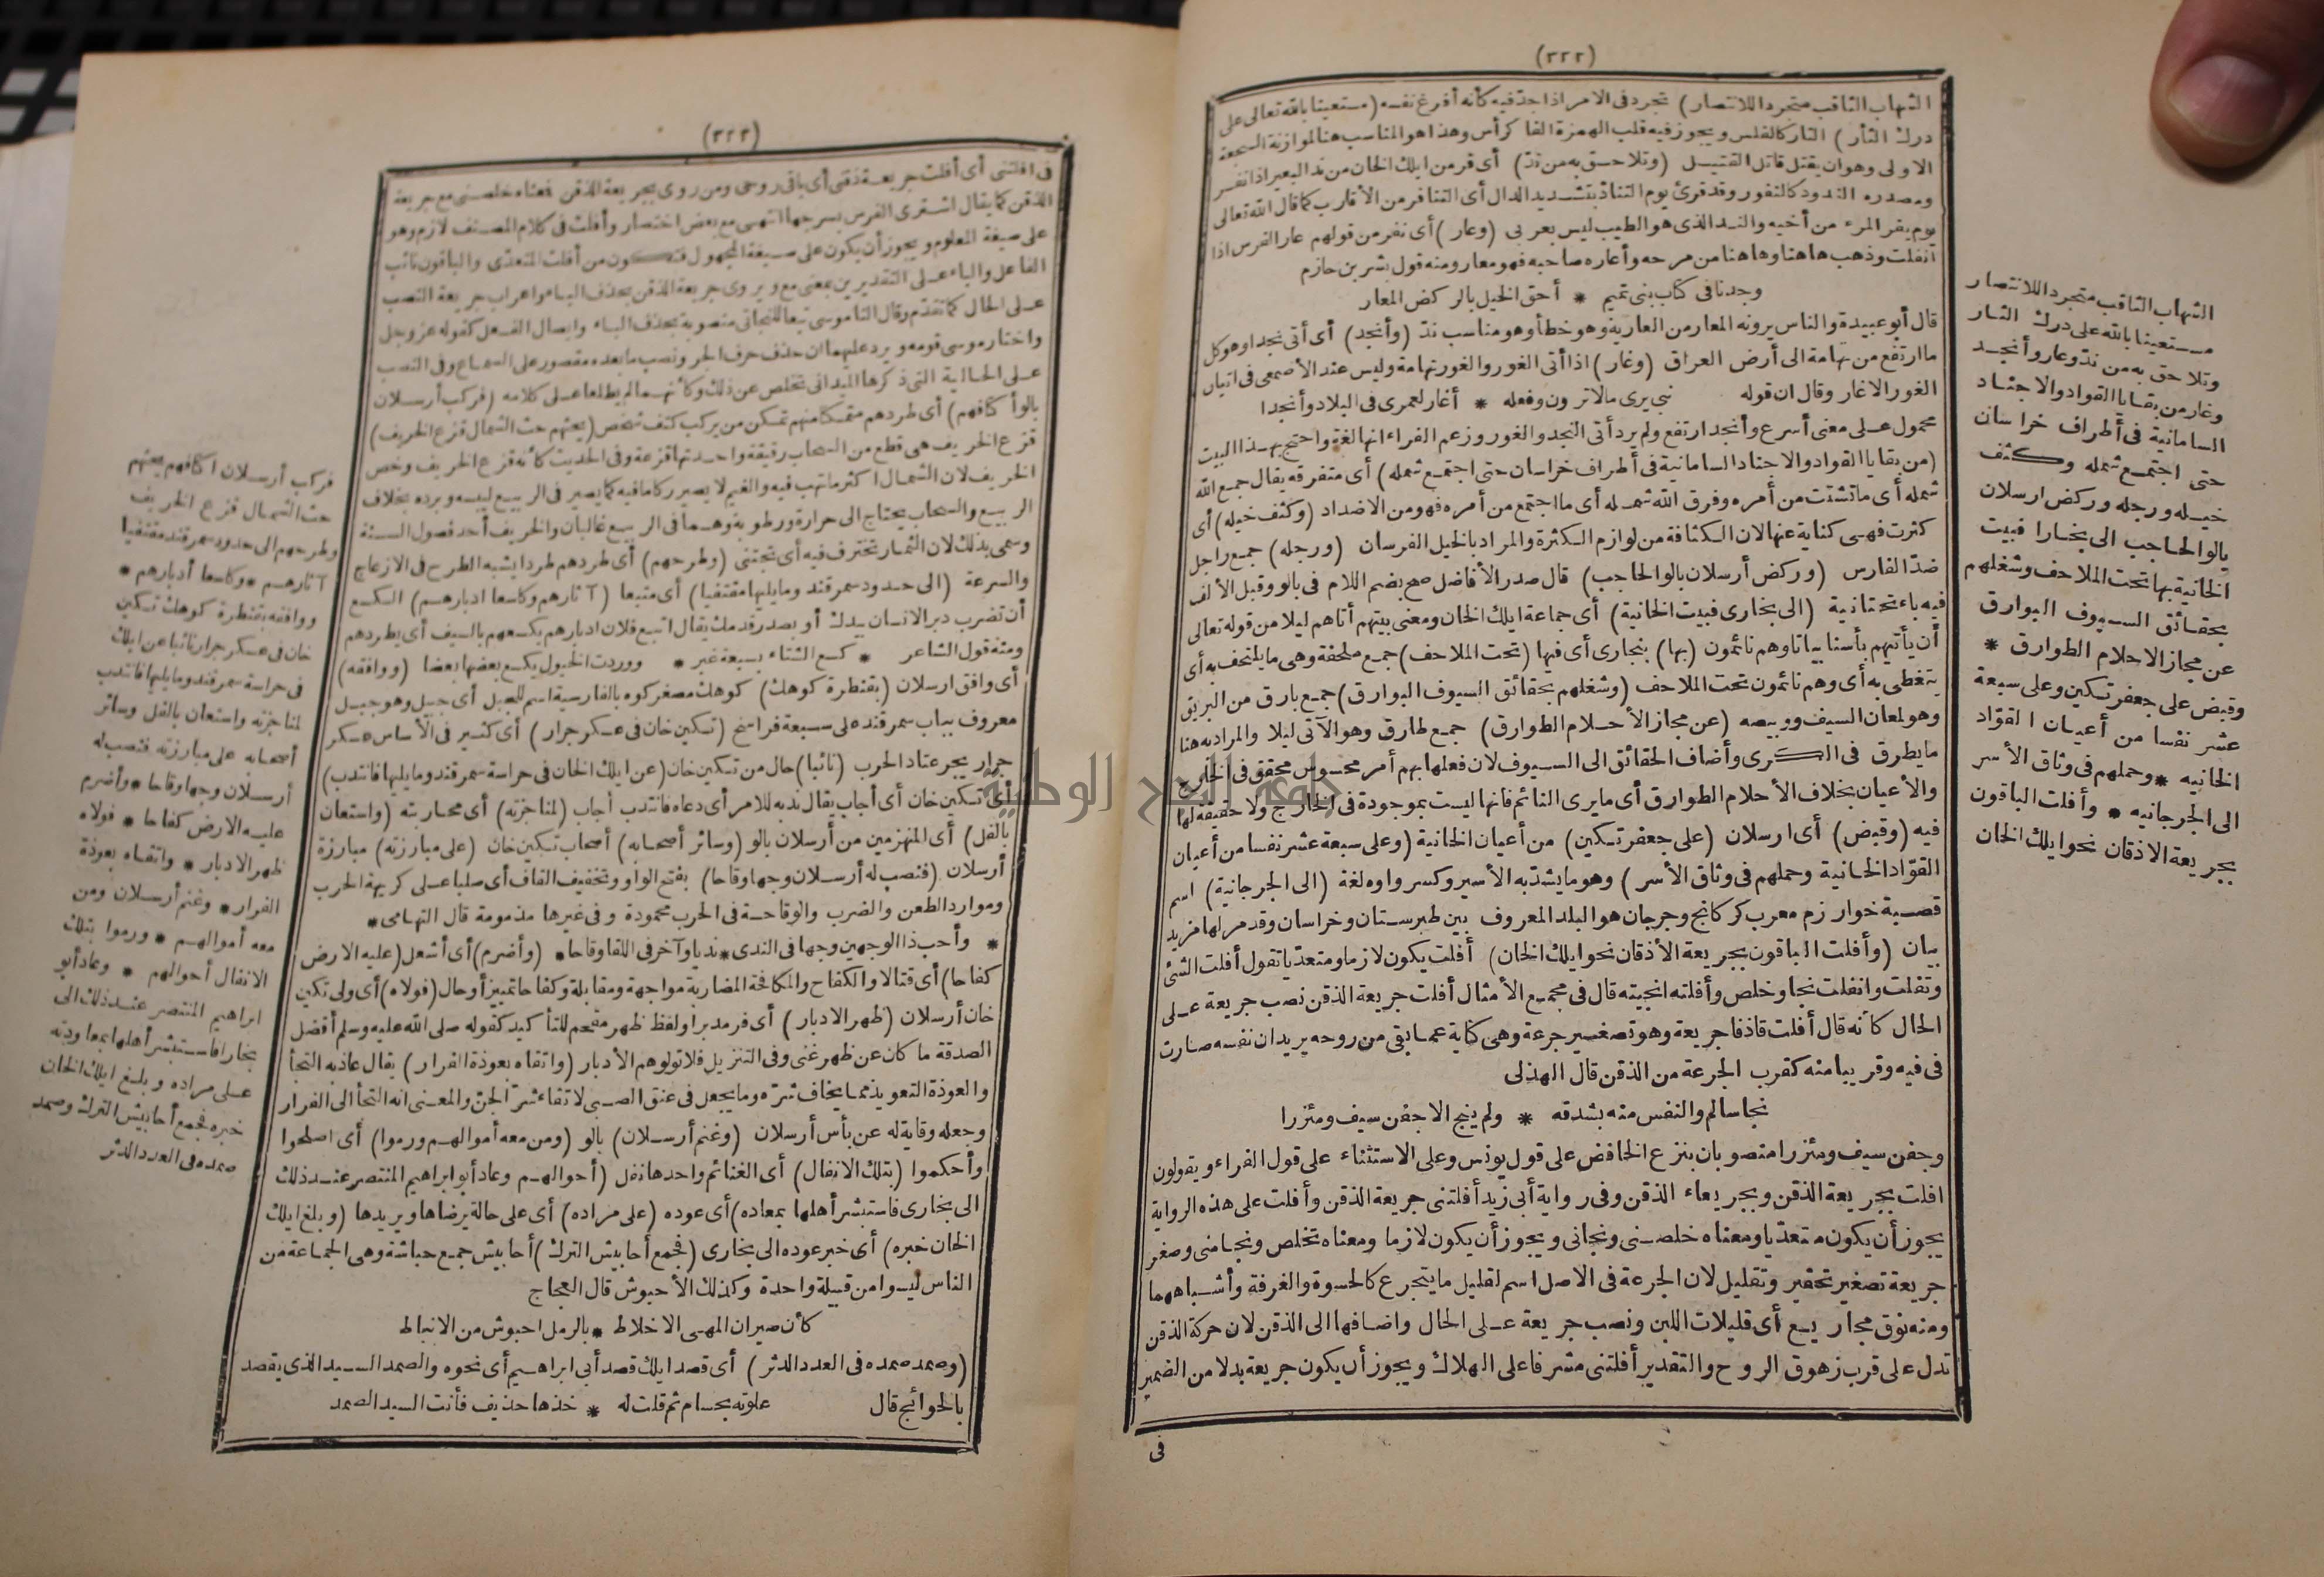 (٣٢٢)
الشهاب الثاقب متجردا للانتصار) تجرد فى الامر اذا جد فيه كأنه أفرغ نفسه (مستعينا بالله تعالى على
درك الثأر) الثار كالفلس ويجوز فيه قلب الهمزة الفا كرأس وهذا هو المناسب هنا لموازنة السجعة
الاولى وهو ان يقتل قاتل القتيل (وتلاحق به من ندّ) أى فر من ايلك الخان من ند البعير اذا نفر
ومصدره الندود كالنفور وقد قرئ يوم التنادّ بتشديد الدال أى التنافر من الأقارب كما قال الله تعالى
يوم يفر المرء من أخيه والند الذى هو الطيب ليس بعربى (وعار) أى نفر من قولهم عار الفرس اذا
انفلت وذهب هاهنا وهاهنا من مرحه وأعاره صاحبه فهو معار ومنه قول بشر بن حازم
وجدنا فى كتاب بنى تميم * أحق الخيل بالركض المعار
قال أبو عبيدة والناس يرونه المعار من العارية وهو خطأ وهو مناسب ندّ (وأنجد) أى أتى نجدا وهو كل
ما ارتفع من تهامة الى أرض العراق (وغار) اذا أتى الغور والغور تهامة وليس عند الأصمعى فى اتيان
الغور الا غار وقال ان قوله نبى يرى مالا ترون وفعله * أغار لعمرى فى البلاد وأنجدا
محمول على معنى أسرع وأنجد ارتفع ولم يرد أتى النجد والغور وزعم الفراء انها لغة واحتج بهذا البيت
(من بقايا القواد والاجناد السامانية فى أطراف خراسان حتى اجتمع شمله) أى متفرقه يقال جمع الله
شمله أى ما تشتت من أمره وفرق الله شمله أى ما اجتمع من أمره فهو من الاضداد (وكثف خيله) أى
كثرت فهى كناية عنها لان الكثافة من لوازم الكثرة والمراد بالخيل الفرسان (ورجله) جمع راجل
ضدّ الفارس (وركض أرسلان بالو الحاجب) قال صدر الأفاضل صح بضم اللام فى بالو وقبل الألف
فيه باء تحتانية (الى بخارى فبيت الخانية) أى جماعة ايلك الخان ومعنى بيتهم أتاهم ليلا من قوله تعالى
أن يأتيهم بأسنا بياتا وهم نائمون (بها) ببخارى أى فيها (تحت الملاحف) جمع ملحفة وهى ما يلتحف به أى
يتغطى به أى وهم نائمون تحت الملاحف (وشغلهم بحقائق السيوف البوارق) جمع بارق من البريق
وهو لمعان السيف ووبيصه (عن مجاز الأحلام الطوارق) جمع طارق وهو الآتى ليلا والمراد به هنا
ما يطرق فى الكرى وأضاف الحقائق الى السيوف لان فعلها بهم أمر محسوس محقق فى الخارج
والأعيان بخلاف الأحلام الطوارق أى ما يرى النائم فانها ليست بموجودة فى الخارج ولا حقيقة لها
فيه (وقبض) أى ارسلان (على جعفر تكين) من أعيان الخانية (وعلى سبعة عشر نفسا من أعيان
القوّاد الخانية وحملهم فى وثاق الأسر) وهو ما يشدّ به الأسير وكسر واوه لغة (الى الجرجانية) اسم
قصبة خوارزم معرب كركانج وجرجان هو البلد المعروف بين طبرستان وخراسان وقد مر لها مزيد
بيان (وأفلت الباقون بجريعة الأذقان نحو ايلك الخان) أفلت يكون لازما ومتعدّيا تقول أفلت الشئ
وتفلت وانفلت نجا وخلص وأفلته انجيته قال فى مجمع الأمثال أفلت جريعة الذقن نصب جريعة على
الحال كأنه قال أفلت قاذفا جريعة وهو تصغير جرعة وهى كناية عما بقى من روحه يريد ان نفسه صارت
فى فيه وقريبا منه كقرب الجرعة من الذقن قال الهذلى
نجا سالم والنفس منه بشدقه * ولم ينج الا جفن سيف ومئزرا
وجفن سيف ومئزرا منصوبان بنزع الخافض على قول يونس وعلى الاستثناء على قول الفراء ويقولون
افلت بجريعة الذقن وبجريعاء الذقن وفى رواية أبى زيد أفلتنى جريعة الذقن وأفلت على هذه الرواية
يجوز أن يكون متعدّيا ومعناه خلصنى ونجانى ويجوز أن يكون لازما ومعناه تخلص ونجا منى وصغر
جريعة تصغير تحقير وتقليل لان الجرعة فى الاصل اسم لقليل ما يتجرع كالحسوة والغرفة وأشباههما
ومنه نوق مجاريع أى قليلات اللبن ونصب جريعة على الحال واضافها الى الذقن لان حركة الذقن
تدل على قرب زهوق الروح والتقدير أفلتنى مشرفا على الهلاك ويجوز أن يكون جريعة بدلا من الضمير
فى
الشهاب الثاقب متجردا للانتصار
مستعينا بالله على درك الثار
وتلاحق به من ندّ وعار وأنجد
وغار من بقايا القواد والاجناد
السامانية فى أطراف خراسان
حتى اجتمع شمله وكثف
خيله ورجله وركض ارسلان
بالو الحاجب الى بخارا فبيت
الخانية بها تحت الملاحف وشغلهم
بحقائق السيوف البوارق
عن مجاز الاحلام الطوارق *
وقبض على جعفر تكين وعلى سبعة
عشر نفسا من أعيان القوّاد
الخانيه * وحملهم فى وثاق الأسر
الى الجرجانيه * وأفلت الباقون
بجريعة الاذقان نحو ايلك الخان
(٣٢٣)
فى افلتنى أى أفلت جريعة ذقنى أى باقى روحى ومن روى بجريعة الذقن فمعناه خلصنى مع جريعة
الذقن كما يقال اشترى الفرس بسرجها انتهى مع بعض اختصار وأفلت فى كلام المصنف لازم وهو
على صيغة المعلوم ويجوز أن يكون على صيغة المجهول فتكون من أفلت المتعدّى والباقون نائب
الفاعل والباء على التقديرين بمعنى مع ويروى جريعة الذقن بحذف الباء واعراب جريعة النصب
على الحال كما تقدّم وقال الناموسى تبعا للنجاتى منصوبة بحذف الباء وايصال الفعل كقوله عز وجل
واختار موسى قومه ويرد عليهما ان حذف حرف الجر ونصب ما بعده مقصور على السماع وفى النصب
على الحالية التى ذكرها الميدانى تخلص عن ذلك وكأنهما لم يطلعا على كلامه (فركب أرسلان
بالو أكافهم) أى طردهم متمكنا منهم تمكن من يركب كتف شخص (يحثهم حث الشمال قزع الخريف)
قزع الخريف هى قطع من السحاب رقيقة واحدتها قزعة وفى الحديث كأنه قزع الخريف وخص
الخريف لان الشمال اكثر ما تهب فيه والغيم لا يصير ركاما فيه كما يصير فى الربيع ليبسه وبرده بخلاف
الربيع والسحاب يحتاج الى حرارة ورطوبة وهما فى الربيع غالبان والخريف أحد فصول السنة
وسمى بذلك لان الثمار تخترف فيه أى تجتنى (وطرحهم) أى طردهم طردا يشبه الطرح فى الازعاج
والسرعة (الى حدود سمرقند وما يليها مقتفيا) أى متبعا (آثارهم وكاسعا ادبارهم) الكسع
أن تضرب دبر الانسان بيدك أو بصدر قدمك يقال اتبع فلان ادبارهم يكسعهم بالسيف أى يطردهم
ومنه قول الشاعر * كسع الشتاء بسبعة غبر * ووردت الخيول يكسع بعضها بعضا (ووافقه)
أى وافق ارسلان (بقنطرة كوهك) كوهك مصغر كوه بالفارسية اسم للجبل أى جبيل وهو جبيل
معروف بباب سمرقند على سبعة فراسخ (تكين خان فى عسكر جرار) أى كثير فى الأساس عسكر
جرار يجر عتاد الحرب (نائبا) حال من تكين خان (عن ايلك الخان فى حراسة سمرقند وما يليها فانتدب)
أى تكين خان أى أجاب يقال ندبه للامر أى دعاه فانتدب أجاب (لمناجزته) أى محاربته (واستعان
بالفل) أى المنهزمين من أرسلان بالو (وسائر أصحابه) أصحاب تكين خان (على مبارزته) مبارزة
أرسلان (فنصب له أرسلان وجها وقاحا) بفتح الواو وتخفيف القاف أى صلبا على كريهة الحرب
وموارد الطعن والضرب والوقاحة فى الحرب محمودة وفى غيرها مذمومة قال التهامى *
* وأحب ذا الوجهين وجها فى الندى * نديا وآخر فى اللقا وقاحا * (وأضرم) أى أشعل (عليه الارض
كفاحا) أى قتالا والكفاح والمكافحة المضاربة مواجهة ومقابلة وكفاحا تمييز أو حال (فولاه) أى ولى تكين
خان أرسلان (ظهر الادبار) أى فر مدبرا ولفظ ظهر مقحم للتأكيد كقوله صلى الله عليه وسلم أفضل
الصدقة ما كان عن ظهر غنى وفى التنزيل فلا تولوهم الأدبار (واتقاه بعوذة الفرار) يقال عاذ به التجأ
والعوذة التعويذ مما يخاف شرّه وما يجعل فى عنق الصبى لاتقاء شرّ الجنّ والمعنى انه التجأ الى الفرار
وجعله وقاية له عن بأس أرسلان (وغنم أرسلان) بالو (ومن معه أموالهم ورموا) أى اصلحوا
وأحكموا (بتلك الانفال) أى الغنائم واحدها نفل (أحوالهم وعاد أبو ابراهيم المنتصر عند ذلك
الى بخارى فاستبشر أهلها بمعاده) أى عوده (على مراده) أى على حالة يرضاها ويريدها (وبلغ ايلك
الخان خبره) أى خبر عوده الى بخارى (فجمع أحابيش الترك) أحابيش جمع حباشة وهى الجماعة من
الناس ليسوا من قبيلة واحدة وكذلك الأحبوش قال العجاج
كأن صيران المهى الاخلاط * بالرمل احبوش من الانباط
(وصمد صمده فى العدد الدثر) أى قصد ايلك قصد أبى ابراهيم أى نحوه والصمد السيد الذى يقصد
بالحوائج قال علوته بحسام ثم قلت له * خذها حذيف فأنت السيد الصمد
فركب أرسلان اكافهم يحثهم
حث الشمال قزع الخريف
وطرحهم الى حدود سمرقند مقتفيا
آثارهم * وكاسعا أدبارهم *
ووافقه بقنطرة كوهك تكين
خان فى عسكر جرار نائبا عن ايلك
فى حراسة سمرقند وما يليها فانتدب
لمناجزته واستعان بالفل وسائر
أصحابه على مبارزته فنصب له
أرسلان وجها وقاحا * وأضرم
عليه الارض كفاحا * فولاه
ظهر الادبار * واتقاه بعوذة
الفرار * وغنم أرسلان ومن
معه أموالهم * ورموا بتلك
الانفال أحوالهم * وعاد أبو
ابراهيم المنتصر عند ذلك الى
بخارا فاستبشر أهلها بمعاودته
على مراده وبلغ ايلك الخان
خبره فجمع أحابيش الترك وصمد
صمده فى العدد الدثر